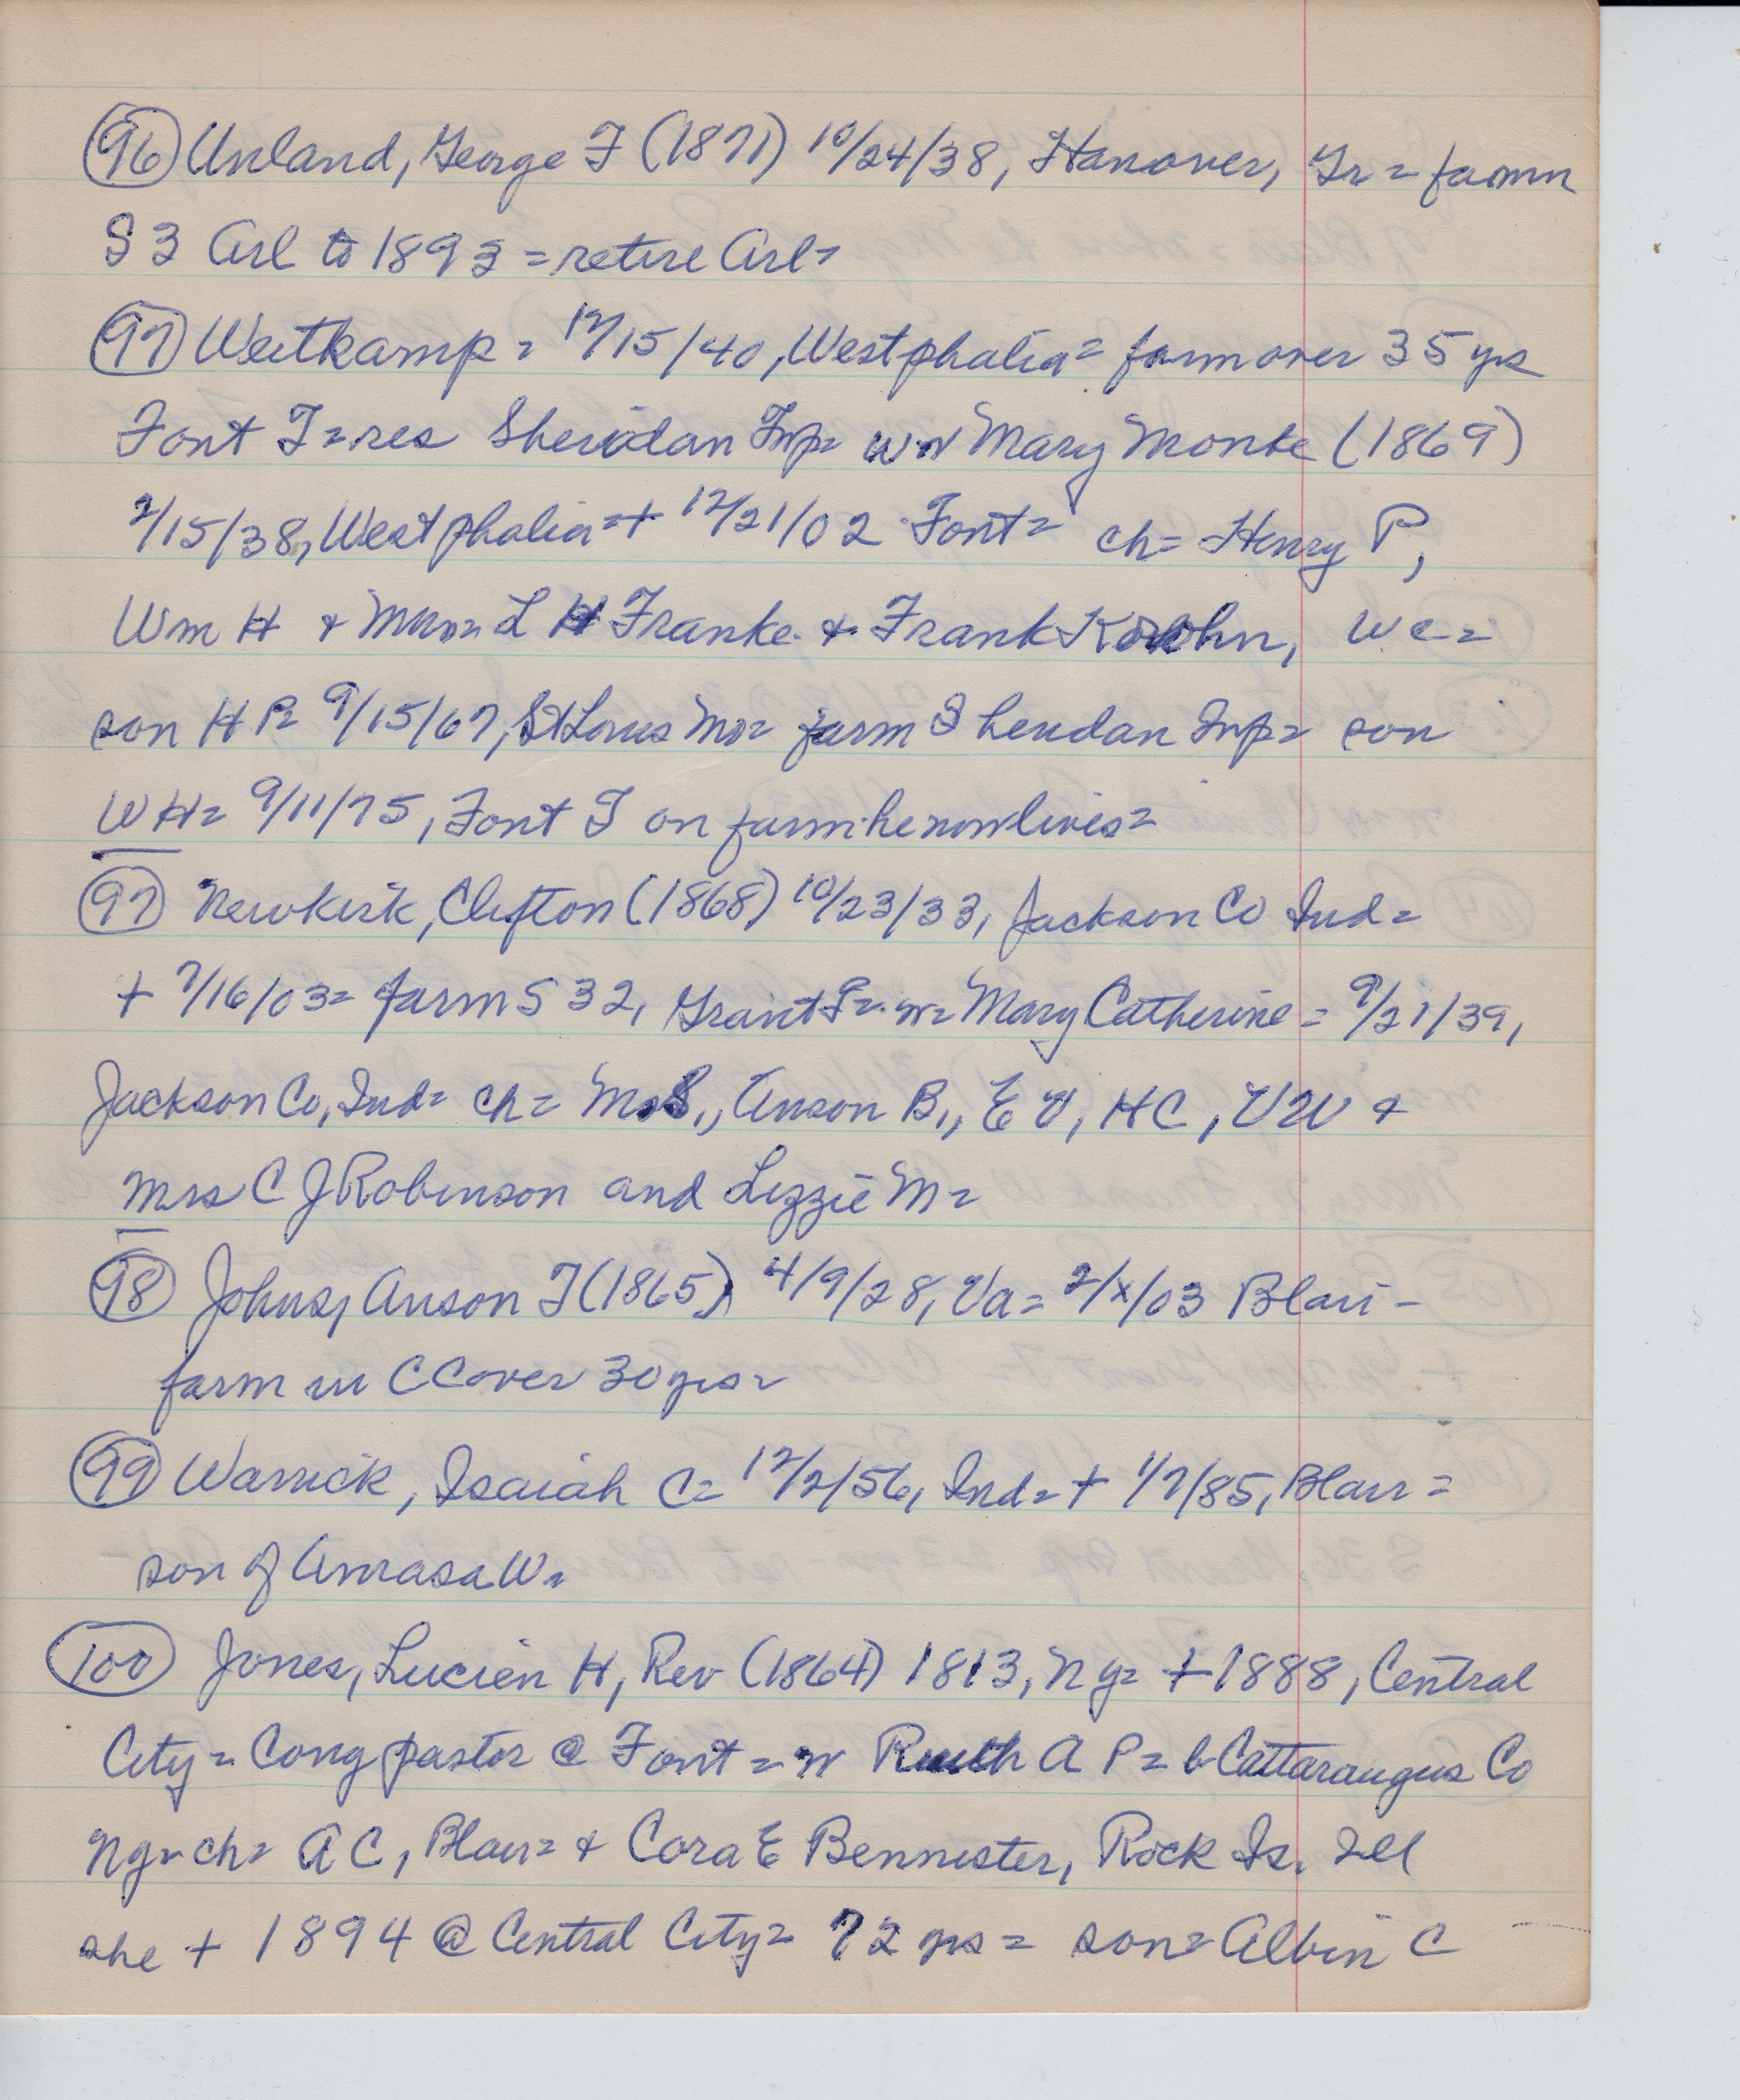 (96) Unland, George F (1871) 10/24/38, Hanover, Gr = farm
S 3 Arl to 1893 = retire Arl=
(97) Weitkamp = 12/15/40, Westphalia = farm over 35 yrs
Font T = res Sheridan Twp = w Mary Monke (1869)
2/15/38, Westphalia = + 12/21/02 Font = ch = Henry P,
Wm H & L H Franke & Frank Krohn, W C =
son H P = 9/15/67, St Louis Mo = farm Sheridan Twp = son
W H = 9/11/75, Font T on farm he now lives =
(97) Newkirk, Clifton (1868) 10/23/33, Jackson Co Ind =
+ 7/16/03 = farm S 32, Grant P = w = Mary Catherine = 9/21/39,
Jackson Co, Ind = ch = M S,, Anson B,, E V, H C, V W &
Mrs C J Robinson and Lizzie M =
(98) Johns, Anson T (1865) 4/9/28, Va = 2/x/03 Blair -
farm in C C over 30 yrs =
(99) Warrick, Isaiah C = 12/2/56, Ind = + 1/7/85, Blair =
son of Amasa W =
(100) Jones, Lucien H, Rev (1864) 1813, Ny = + 1888, Central
City = Cong pastor @ Font = w Ruth A P = b Cattaraugus Co
Ny = ch = A C, Blair = & Cora E Bennister, Rock Is. Ill
she + 1894 @ Central City = 72 yrs = son = Albin C